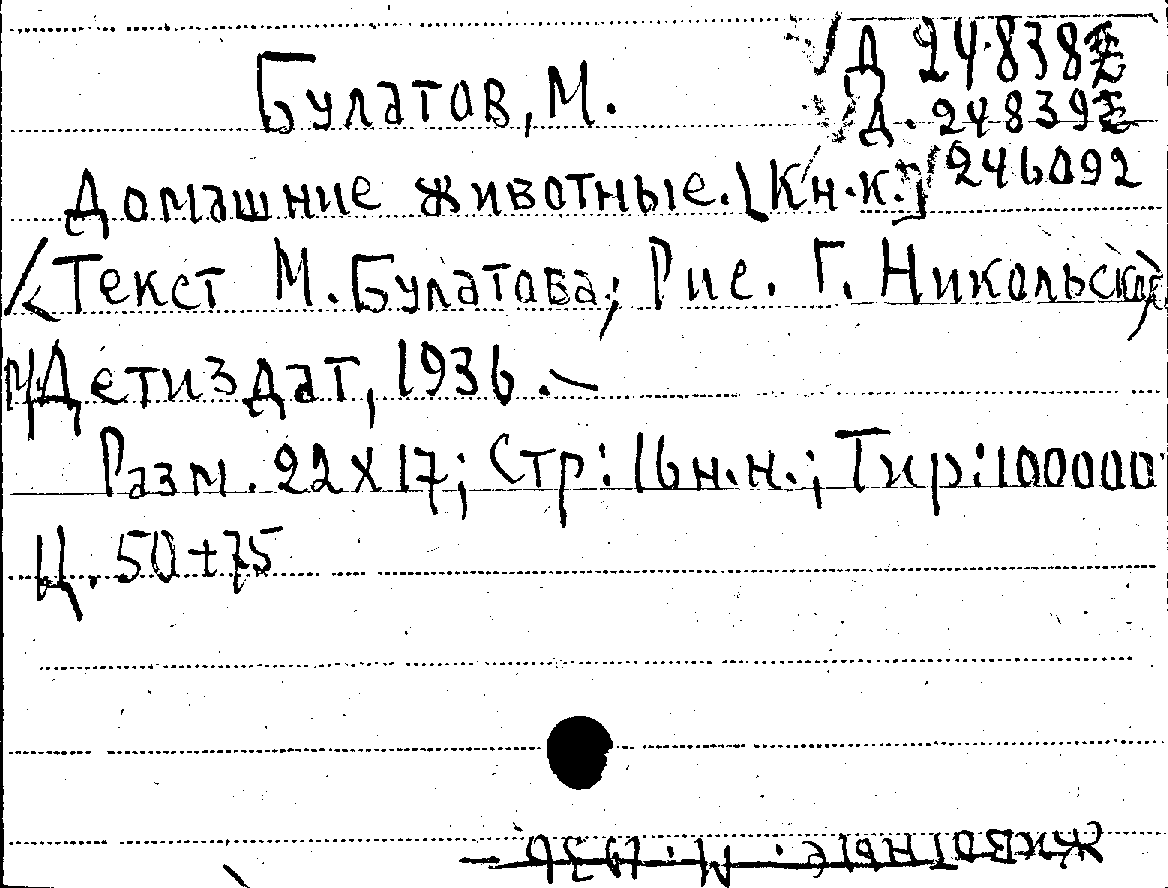 Д 24838
Булатов, М.
Д. 24839
Домашние животные. [Кн.-к.] 246092
/Текст М. Булатова; Рис. Г. Никольской/
М., Детиздат, 1936. –
Разм. 22х17; Стр: 16 н.н.; Тир: 100000
Ц. 50+75
животные. М. 1936 –